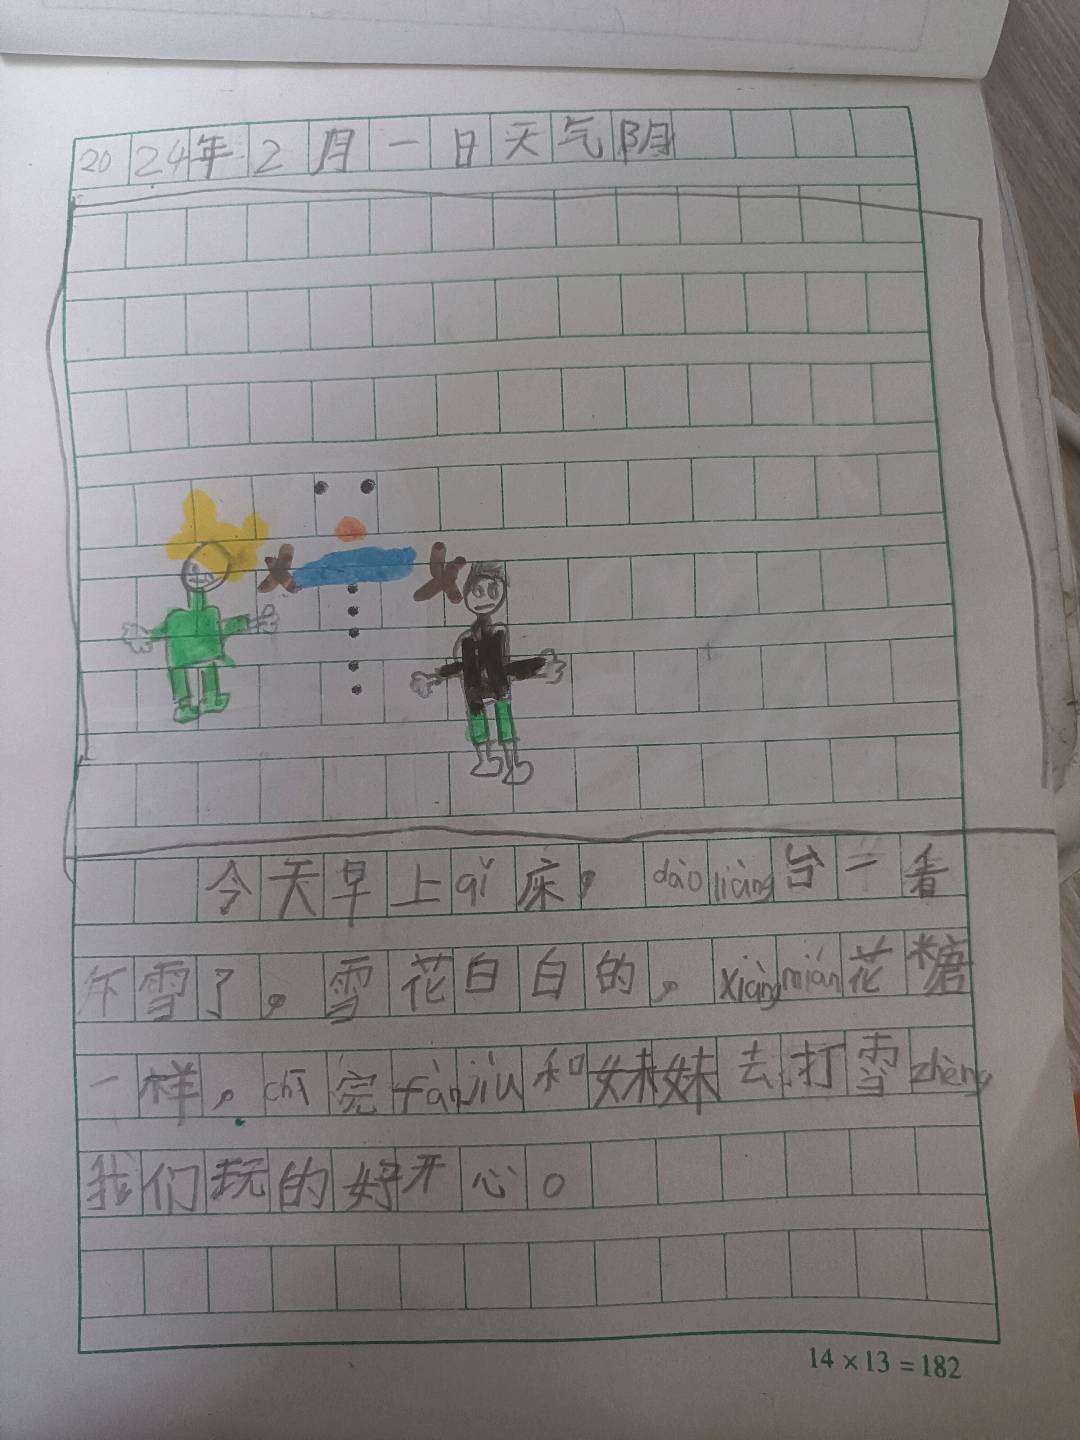 2024年2月一日天气阴
今天早上qǐ床，dào liàng台一看
下雪了。雪花白白的，xiàng mián花糖
一样，chī完fàn jiù和妹妹去打雪zhàng
我们玩的好开心。
14×13=182